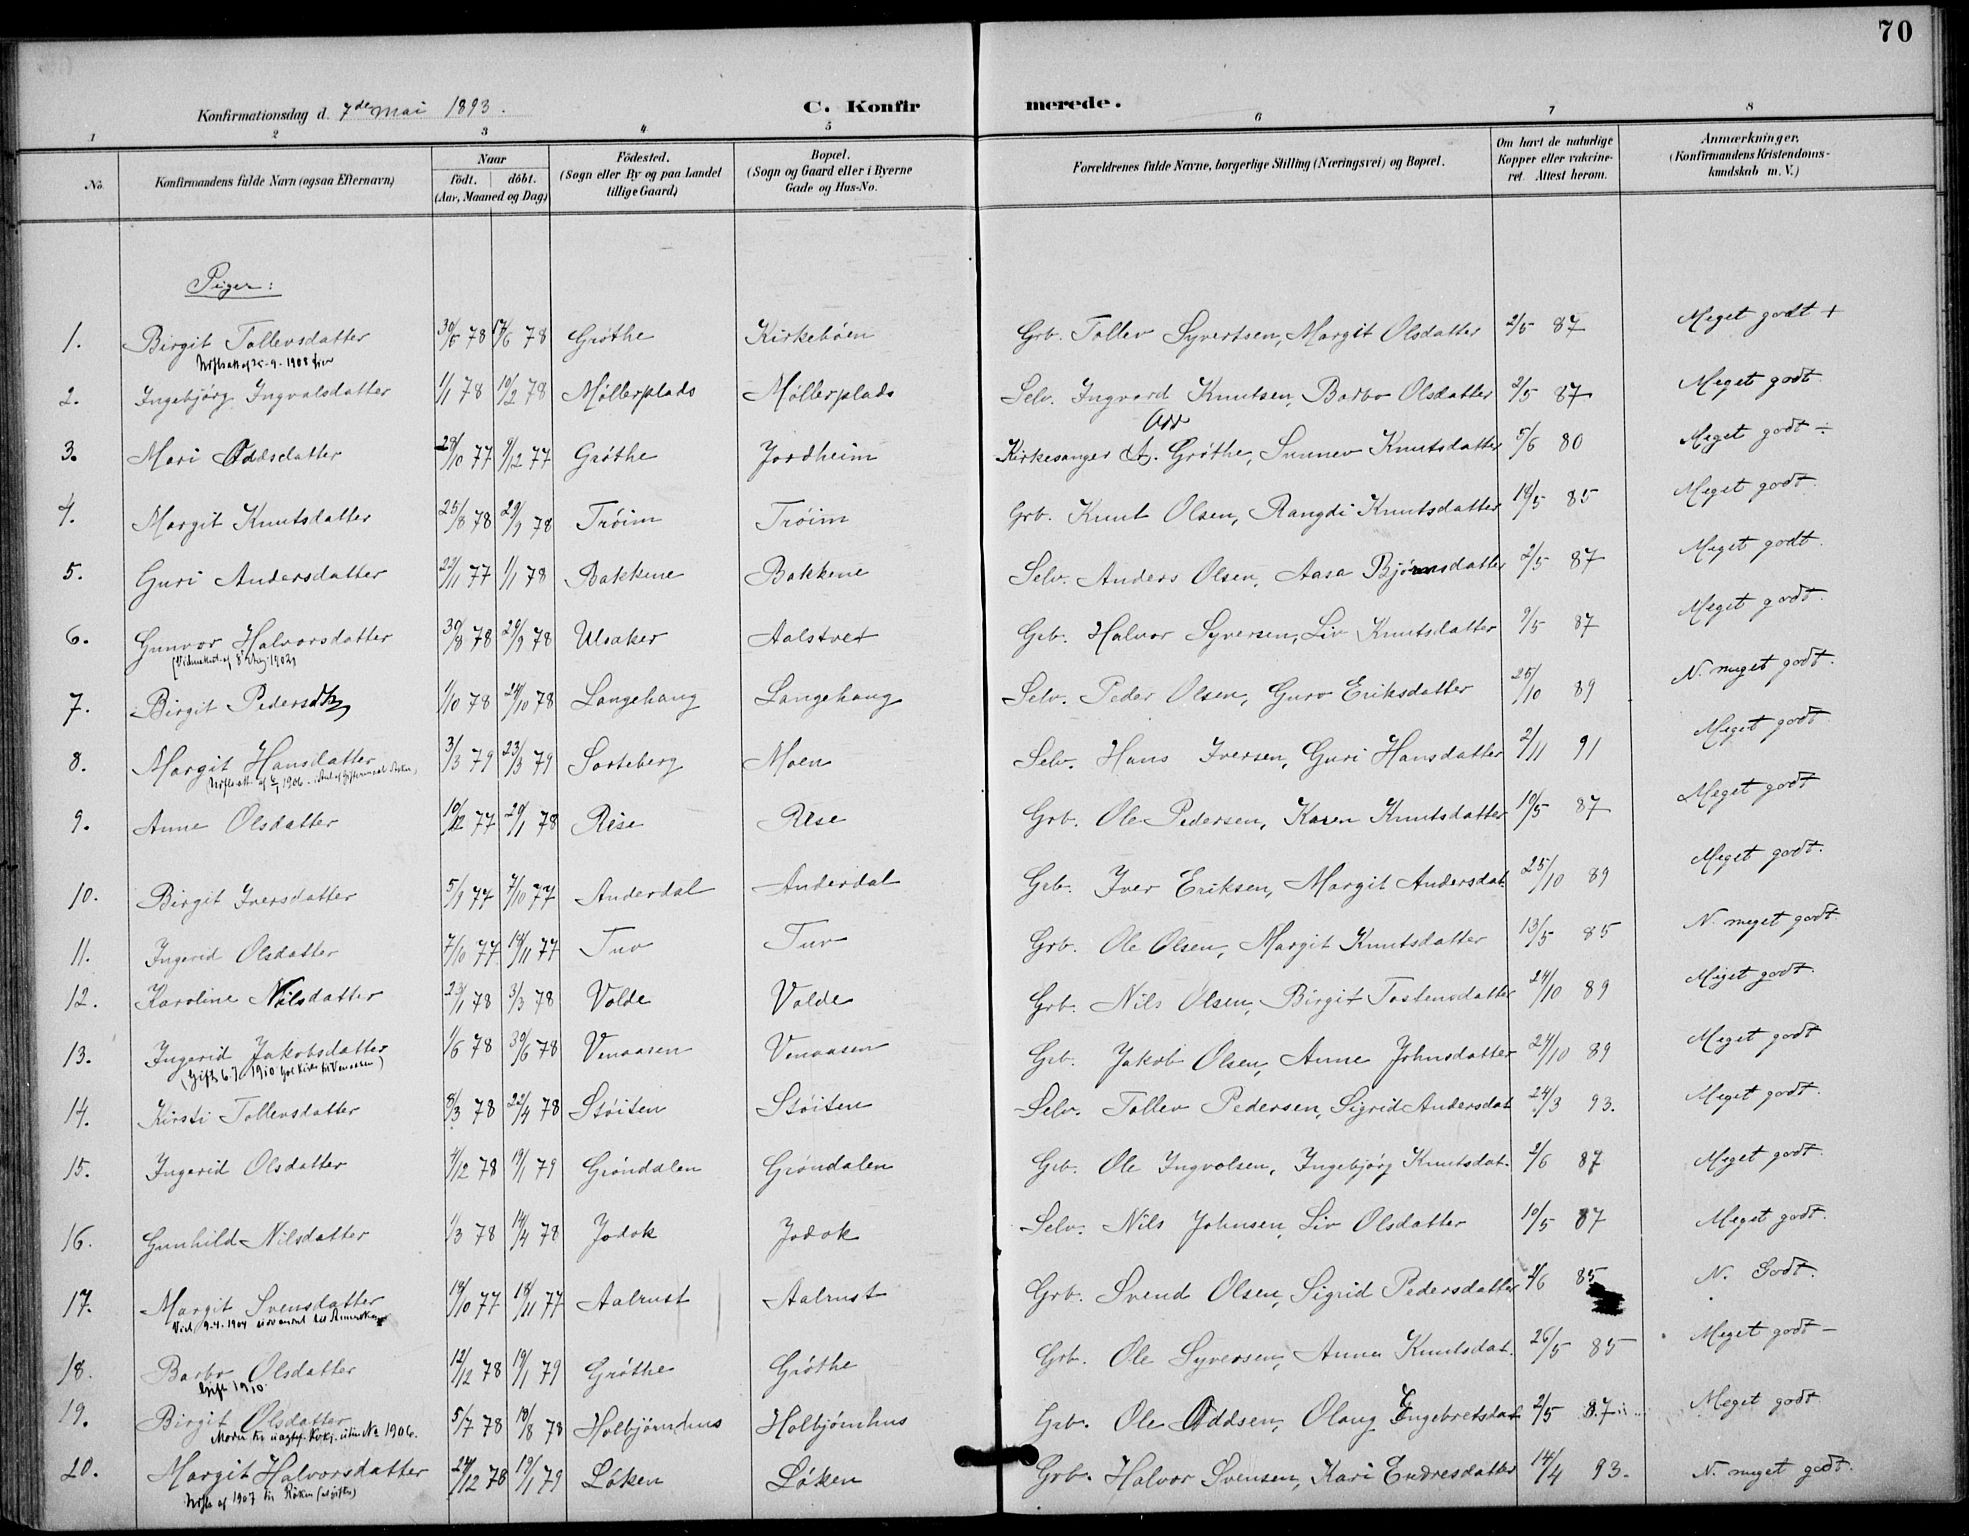 70
Konfirmationsdag d. 7de Mai 1893. C. Konfirmerede.
1 2 3 4 5 6 7 8
No. Konfirmandens fulde Navn (ogsaa Efternavn) Naar født. døbt. (Aar, Maaned og Dag) Fødested. (Sogn eller By og paa Landet tillige Gaard) Bopæl. (Sogn og Gaard eller i Byerne Gade og Hus-No. Forældrenes fulde Navne, borgerlige Stilling (Næringsvei) og Bopæl. Om havt de naturlige Kopper eller vakcineret. Attest herom. Anmærkninger, (Konfirmandens Kristendomskundskab m. V.)
Piger:
1. Birgit Tollevsdatter 30/5 78 /6 78 Grøthe Kirkebøen Grb. Tollev Syvertsen, Margit Olsdatter 2/5 87 Meget godt +
1908
2. Ingebjørg Ingvalsdatter 1/1 78 10/2 78 Møllerplads Møllerplads Selv. Ingvard Knutsen, Barbo Olsdatter 2/5 87 Meget godt.
3. Mari Oddsdatter 28/10 77 9/12 77 Grøthe Jordheim Kirkesanger Grøthe, Sunnev Knutsdatter 5/6 80 Meget godt ÷
4. Margit Knutsdatter 25/8 78 29/9 78 Trøim Trøim Grb. Knut Olsen, Rangdi Knutsdatter 18/5 85 Meget godt.
5. Guri Andersdatter 22/11 77 1/1 78 Bakkene Bakkene Selv. Anders Olsen, Aasa Bjørnsdatter 2/5 87 Meget godt.
6. Gunvor Halvorsdatter 30/8 78 29/9 78 Ulsaker Aalstvet Grb. Halvor Syversen, Liv Knutsdatter 9/5 87 Meget godt.
7. Birgit Pedersdtr 1/10 78 24/10 78 Langehaug Langehaug Selv. Peder Olsen, Guro Eriksdatter 25/10 89 N. meget godt.
8. Margit Hansdatter 3/3 79 23/3 79 Sorteberg Moen Selv. Hans Iversen, Guri Hansdatter 2/11 91 Meget godt
1906
9. Anne Olsdatter 10/12 77 20/1 78 Rise Rise Grb. Ole Pedersen, Karen Knutsdatter 10/5 87 Meget godt
10. Birgit Iversdatter 5/9 77 7/10 77 Anderdal Anderdal Grb. Iver Eriksen, Margit Andersdat. 25/10 89 Meget godt.
11. Ingerid Olsdatter 7/10 77 18/11 77 Tuv Tuv Grb. Ole Olsen, Margit Knutsdatter 13/5 85 N. meget godt
12. Karoline Nilsdatter 23/1 78 3/3 78 Volde Volde Grb. Nils Olsen, Birgit Tostensdatter 24/10 89 Meget godt.
13. Ingerid Jakobsdatter 1/6 78 30/6 78 Venaasen Venaasen Grb. Jakob Olsen, Anne Johnsdatter 24/10 89 Meget godt
(Gift 6.7. 1910 Venaasen)
14. Kirsti Tollevsdatter 8/3 78 22/4 78 Støiten Støiten Selv. Tollev Pedersen, Sigrid Andersdat 24/3 93. Meget godt.
15. Ingerid Olsdatter 4/12 78 19/1 79 Grøndalen Grøndalen Grb. Ole Ingvolsen, Ingebjørg Knutsdat. 2/6 87 Meget godt.
16. Gunhild Nilsdatter 1/3 78 14/4 78 Jodok Jodok Selv. Nils Johnsen, Liv Olsdatter 10/5 87 Meget godt.
17. Margit Svensdatter 18/10 77 18/11 77 Aalrust Aalrust Grb. Svend Olsen, Sigrid Pedersdatter 4/6 85 N. Godt.
9.4.1904 Amerika
18. Barbo Olsdatter 12/12 78 19/1 79 Grøthe Grøthe Grb. Ole Syversen, Anna Knutsdat. 26/5 85 Meget godt –
Gift 1910.
19. Birgit Olsdatter 5/7 78 18/8 78 Holbjørnhus Holbjørnhus Grb. Ole Oddsen, Olaug Engebretsdat 2/5 87 Meget godt
1906.
20. Margit Halvorsdatter 24/12 78 19/1 79 Løken Løken Grb. Halvor Svensen, Kari Endresdatter 14/4 93. N. meget godt.
af 1907 Røken